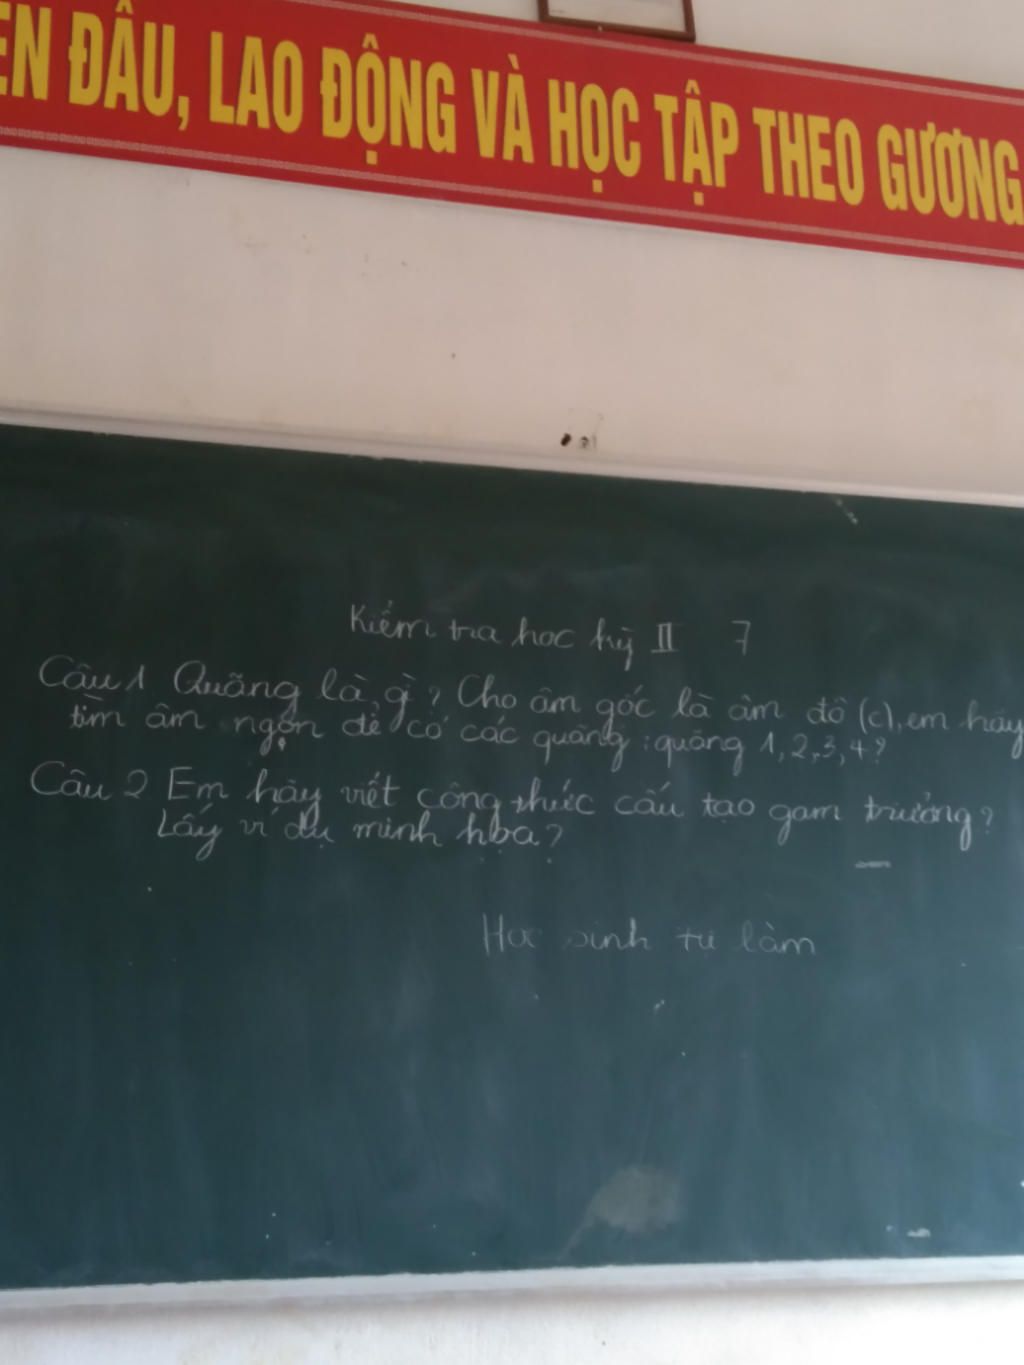 ĐẤU, LAO ĐỘNG VÀ HỌC TẬP THEO GƯƠNG
Kiểm tra học kỳ II 7
Câu 1 Quãng là gì? Cho âm gốc là âm đô (c), em hãy
tìm âm ngọn để có các quãng: quãng 1, 2, 3, 4?
Câu 2 Em hãy viết công thức cấu tạo gam trưởng?
Lấy ví dụ minh họa?
Học sinh tự làm